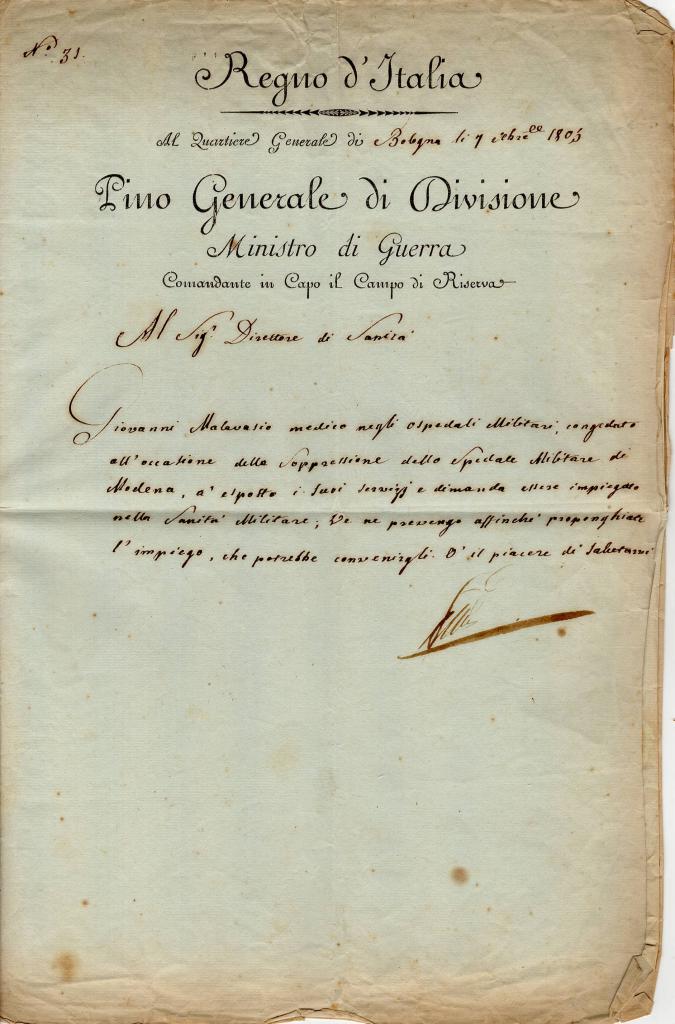 N.º 31.
Regno d'Italia
Al Quartiere Generale di Bologna li 7 1805
Pino Generale di Divisione
Ministro di Guerra
Comandante in Capo il Campo di Riserva
Al Sig.r Direttore di Sanità
Giovanni Malavasio medico negli ospedali Militari, congedato
all'occasione della Soppressione dello Spedale Militare di
Modena, a' esposto i suoi servizj e dimanda essere impiegato
nella Sanità Militare; Ve ne prevengo affinché proponghiate
l'impiego, che potrebbe convenirgli. O' il piacere di Salutarvi